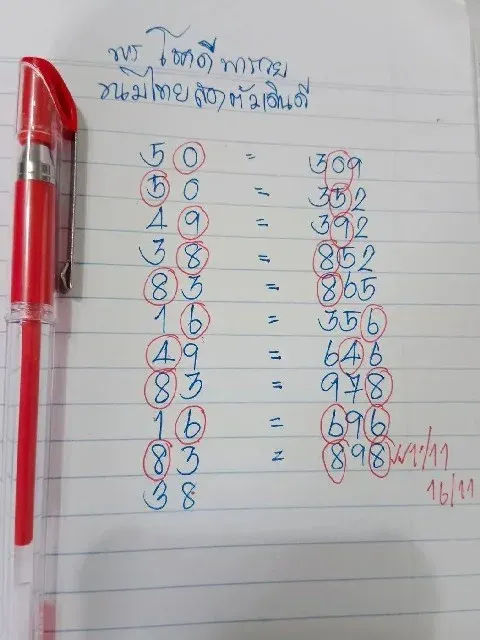 พร โชคดี พารวย
ขนมไทย สูตรต้มเงินดี
50 = 309
50 = 352
49 = 392
38 = 852
83 = 865
16 = 356
49 = 646
83 = 978
16 = 696
83 = 898 1/11
38 16/11